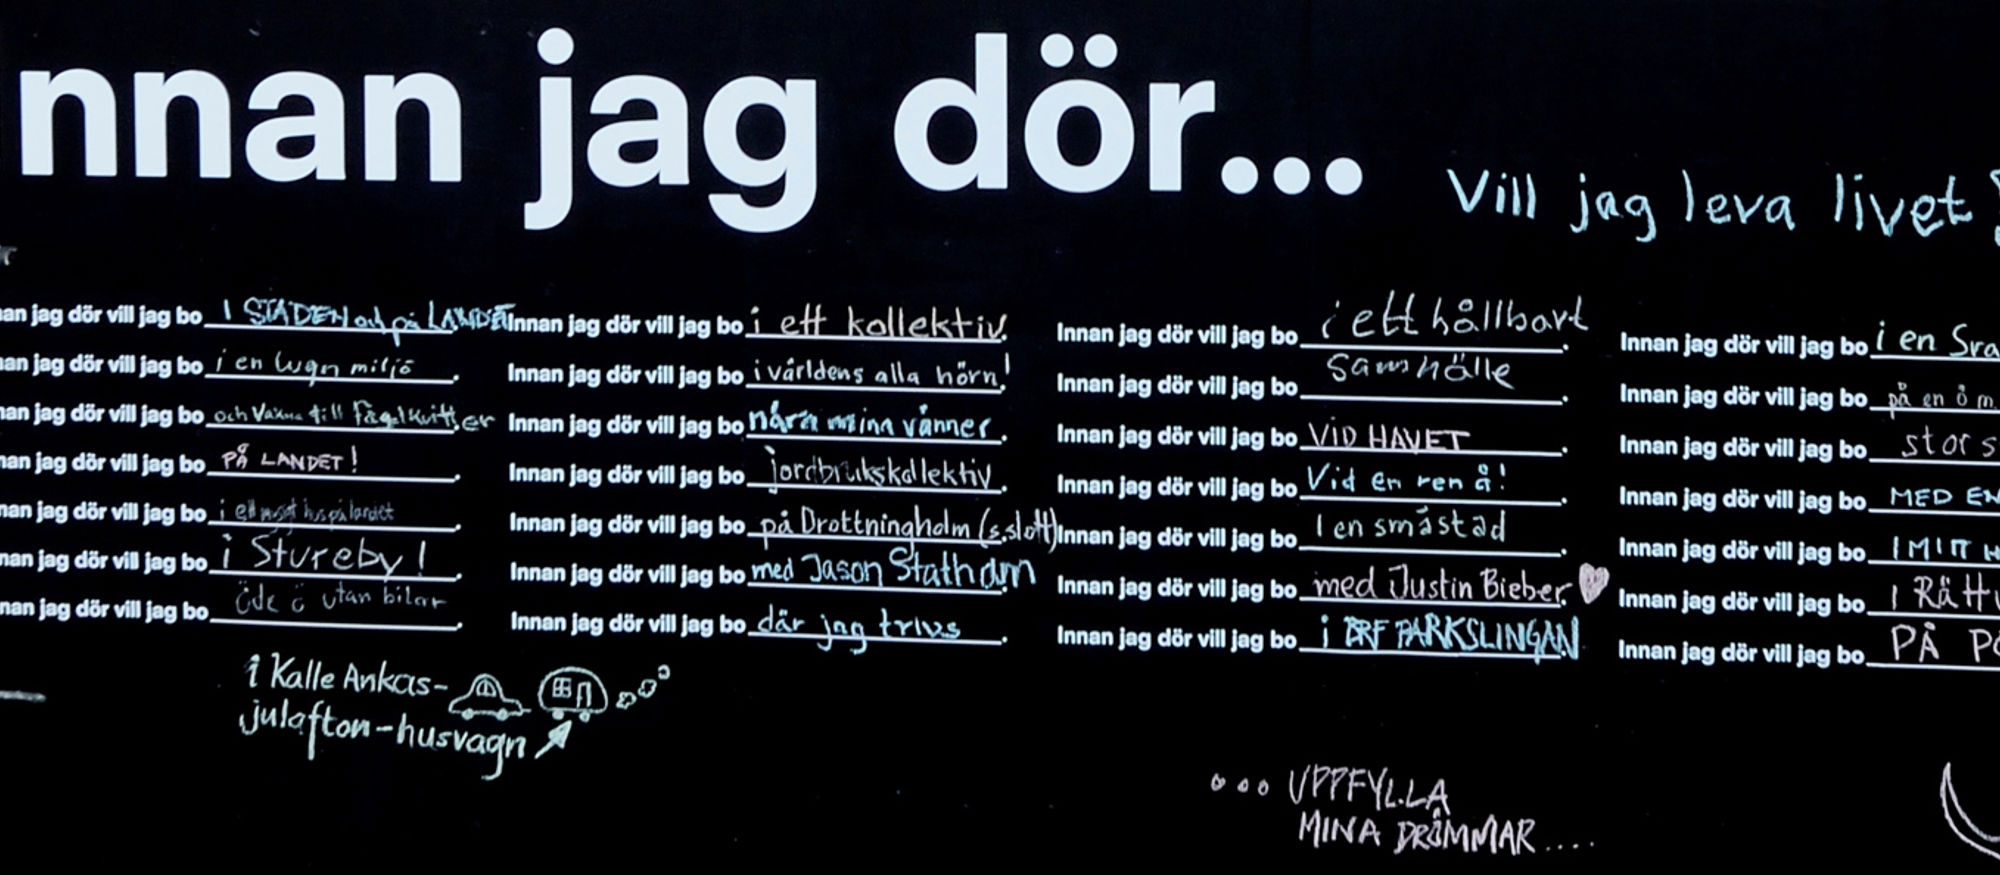 nnan jag dör...
Vill jag leva livet
an jag dör vill jag bo I STADEN och på LANDET
an jag dör vill jag bo i en lugn miljö
an jag dör vill jag bo och vakna till fågelkvitter
an jag dör vill jag bo PÅ LANDET!
nan jag dör vill jag bo i ett mysigt hus på landet
nan jag dör vill jag bo i Stureby!
nan jag dör vill jag bo öde ö utan bilar
i Kalle Ankas-
julafton-husvagn
Innan jag dör vill jag bo i ett kollektiv.
Innan jag dör vill jag bo i världens alla hörn!
Innan jag dör vill jag bo nära mina vänner.
Innan jag dör vill jag bo jordbrukskollektiv.
Innan jag dör vill jag bo på Drottningholm (s.slott)
Innan jag dör vill jag bo med Jason Statham
Innan jag dör vill jag bo där jag trivs.
Innan jag dör vill jag bo i ett hållbart.
Innan jag dör vill jag bo samhälle.
Innan jag dör vill jag bo VID HAVET.
Innan jag dör vill jag bo Vid en ren å!
Innan jag dör vill jag bo I en småstad.
Innan jag dör vill jag bo med Justin Bieber.
Innan jag dör vill jag bo i BRF PARKSLINGAN
... UPPFYLLA
MINA DRÖMMAR....
Innan jag dör vill jag bo i en Sra
Innan jag dör vill jag bo på en ö m
Innan jag dör vill jag bo stor s
Innan jag dör vill jag bo MED EN
Innan jag dör vill jag bo I MITT H
Innan jag dör vill jag bo I RÄTTV
Innan jag dör vill jag bo PÅ PO